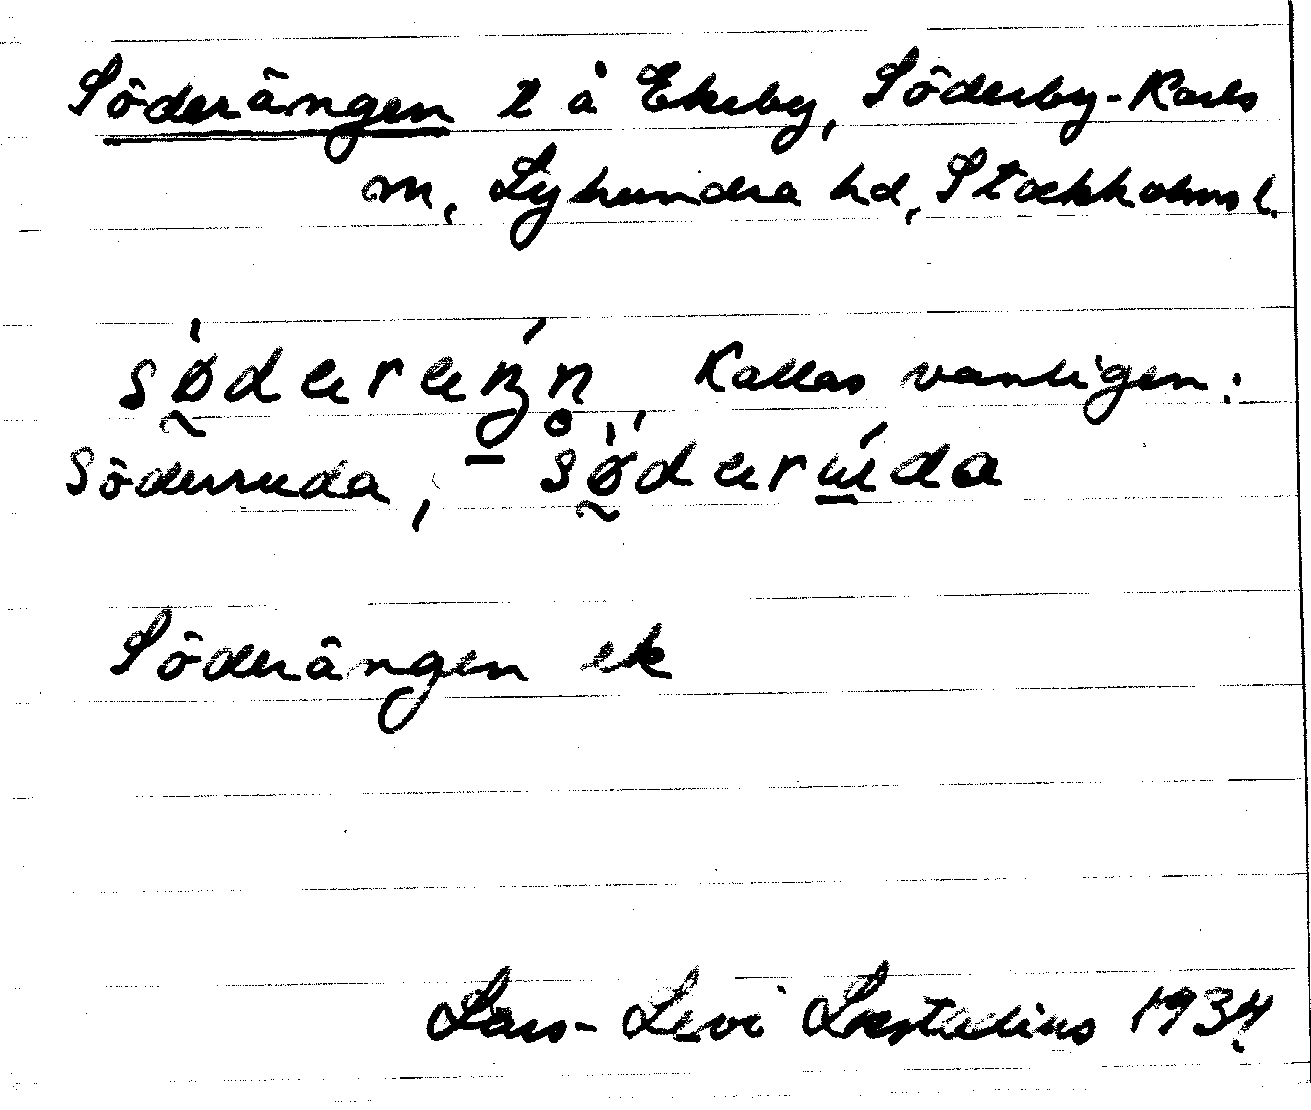 Söderängen l å Ekeby, Söderby-Karls
sn, Lyhundra hd, Stockholms l.
Kallas vanligen:
Söderruda,
Söderängen ek
Lars-Levi Læstadius 1934